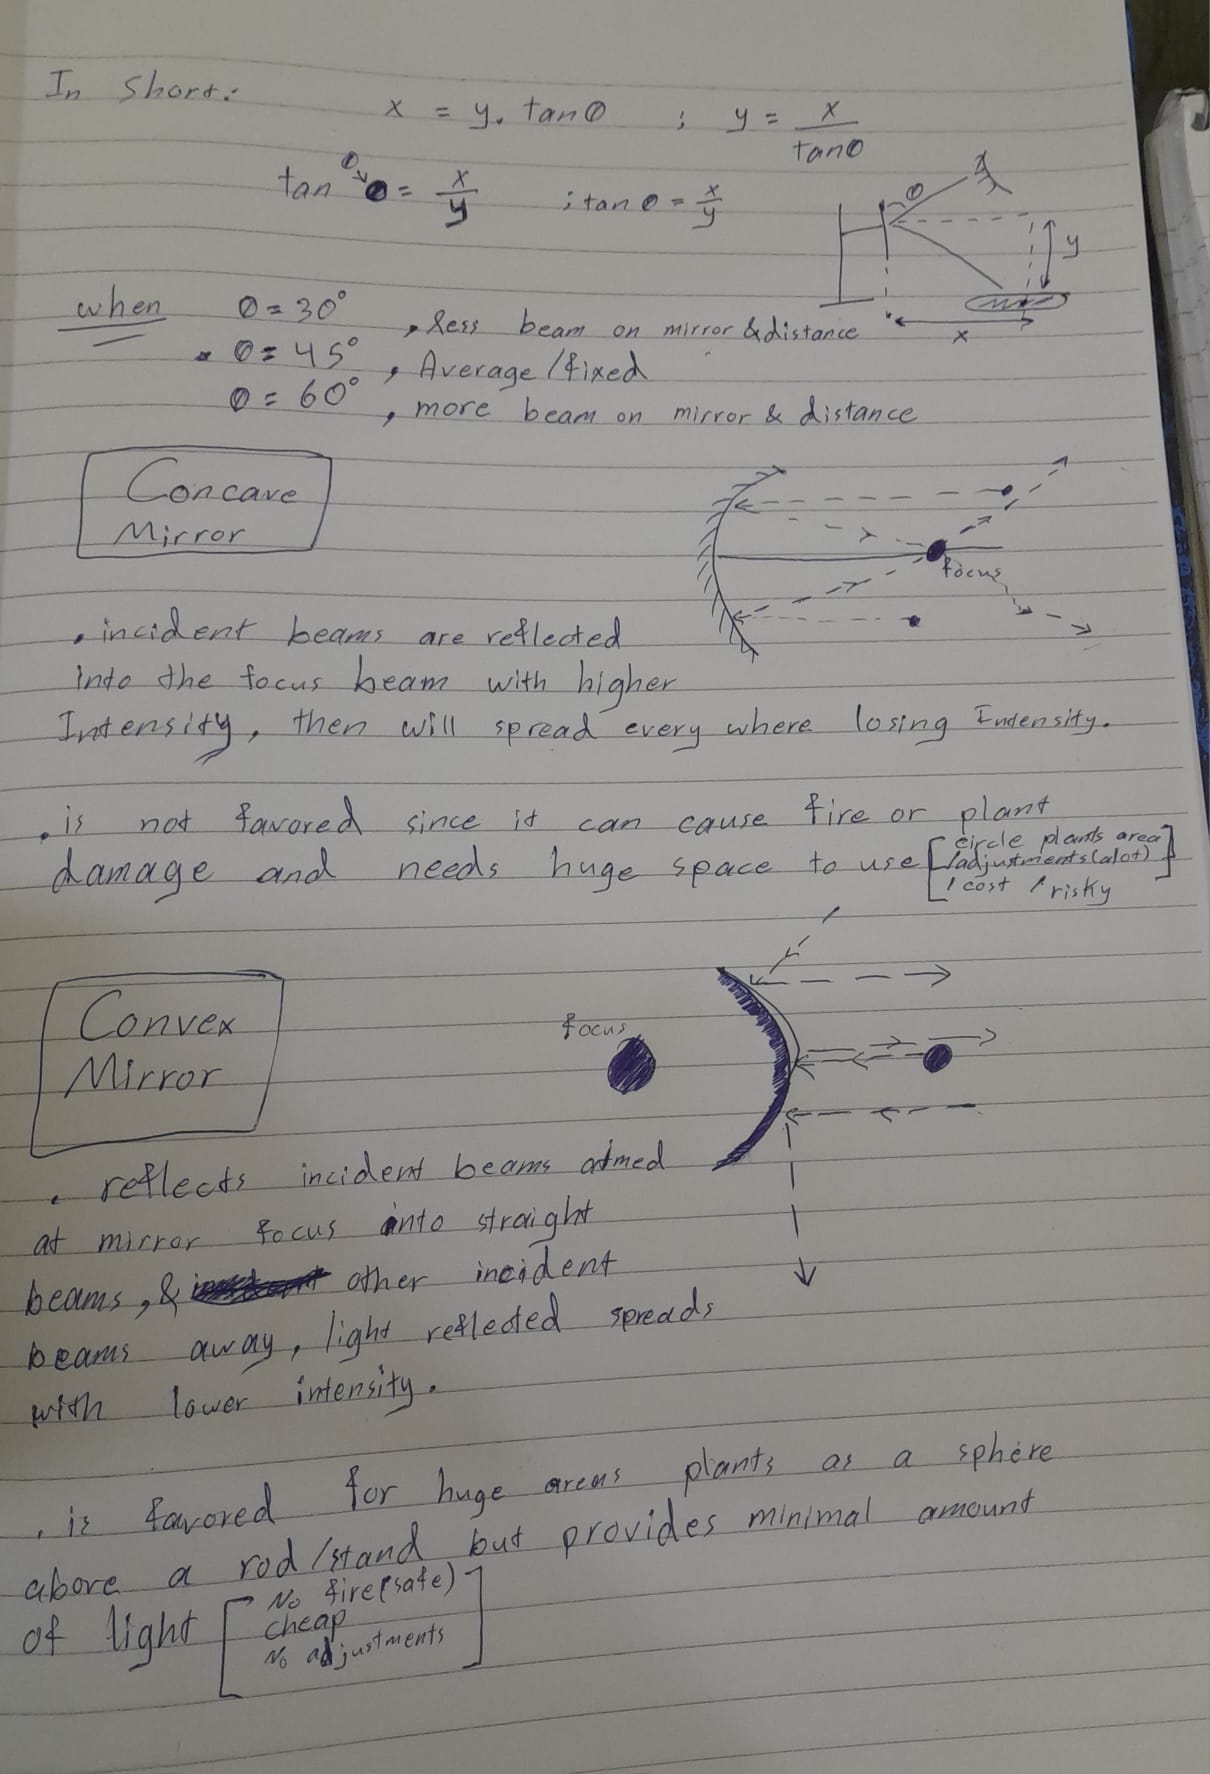 In Short:
x = y. tanθ ; y = x/tanθ
tan θ θ = x/y ; tan θ = x/y
θ
y
x
when θ = 30° , less beam on mirror & distance
• θ = 45° , Average / fixed
θ = 60° , more beam on mirror & distance
Concave
Mirror
focus
• incident beams are reflected
into the focus beam with higher
Intensity, then will spread every where losing Intensity.
• is not favored since it can cause fire or plant
damage and needs huge space to use [circle plants area
/adjustments(alot)
/ cost / risky]
Convex
Mirror
focus
• reflects incident beams aimed
at mirror focus into straight
beams, & other incident
beams away, light reflected spreads
with lower intensity.
• is favored for huge areas plants as a sphere
above a rod/stand but provides minimal amount
of light [No fire(safe)
cheap
No adjustments]